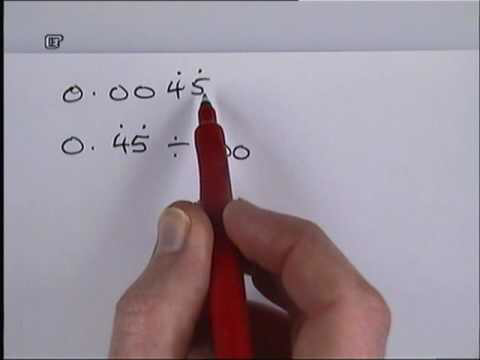 0.004̇5̇
0.4̇5̇ ÷ 00